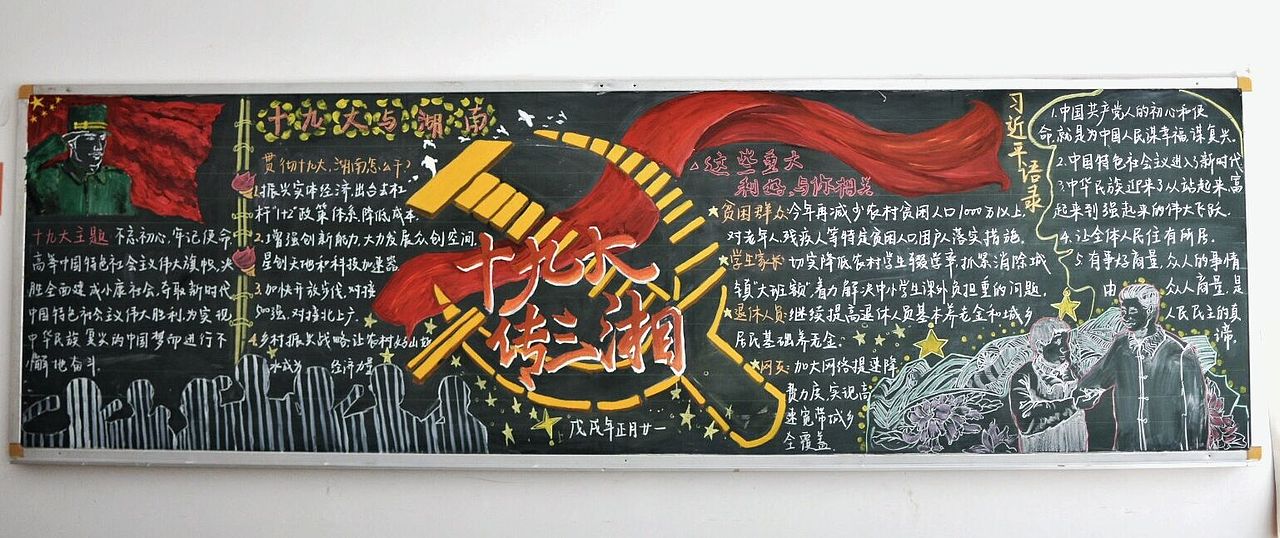 十九大主题 不忘初心,牢记使命,
高等中国特色社会主义伟大旗帜,决
胜全面建成小康社会,夺取新时代
中国特色社会主义伟大胜利,为实现
中华民族复兴的中国梦而进行不
懈地奋斗.
十九大与湖南
贯彻十九大,湖南怎么干?
1.振兴实体经济,出台去杠
杆"1+2"政策体系,降低成本.
2.增强创新能力,大力发展众创空间,
星创天地和科技加速器
3.加快开放步伐,对接
500强,对接北上广.
乡村振兴战略让农村
经济力量
十九大
传三湘
戊戌年正月廿一
这些重大
利好与你相关
贫困群众:今年再减少农村贫困人口1000万以上.
对老年人,残疾人等特定贫困人口因户落实措施.
学生家长:切实降低农村学生辍学率,抓紧消除城
镇"大班额",着力解决中小学生课外负担重的问题.
退休人员:继续提高退休人员基本养老金和城乡
居民基础养老金.
网友:加大网络提速降
费力度,实现高
速宽带城乡
全覆盖.
习近平语录
1.中国共产党人的初心和使
命,就是为中国人民谋幸福,谋复兴.
2.中国特色社会主义进入了新时代
3.中华民族迎来了从站起来,富
起来到强起来的伟大飞跃.
4.让全体人民住有所居.
5.有事好商量,众人的事情
由 众人商量,是
人民民主的真
谛.